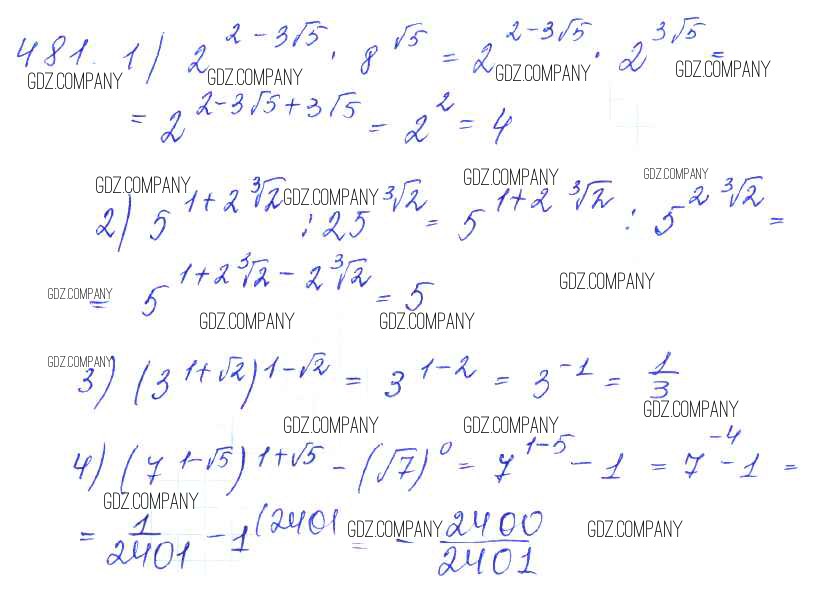 481. 1) 2^(2-3√5) · 8^(√5) = 2^(2-3√5) · 2^(3√5) =
GDZ.COMPANY GDZ.COMPANY GDZ.COMPANY GDZ.COMPANY
= 2^(2-3√5+3√5) = 2^2 = 4
GDZ.COMPANY GDZ.COMPANY GDZ.COMPANY GDZ.COMPANY
2) 5^(1+2∛2) : 25^(∛2) = 5^(1+2∛2) : 5^(2∛2) =
GDZ.COMPANY GDZ.COMPANY
= 5^(1+2∛2-2∛2) = 5
GDZ.COMPANY GDZ.COMPANY
GDZ.COMPANY
3) (3^(1+√2))^(1-√2) = 3^(1-2) = 3^(-1) = 1/3
GDZ.COMPANY GDZ.COMPANY GDZ.COMPANY
4) (7^(1-√5))^(1+√5) - (√7)^0 = 7^(1-5) - 1 = 7^(-4) - 1 =
GDZ.COMPANY GDZ.COMPANY GDZ.COMPANY
= 1/2401 - 1^(2401 = - 2400/2401